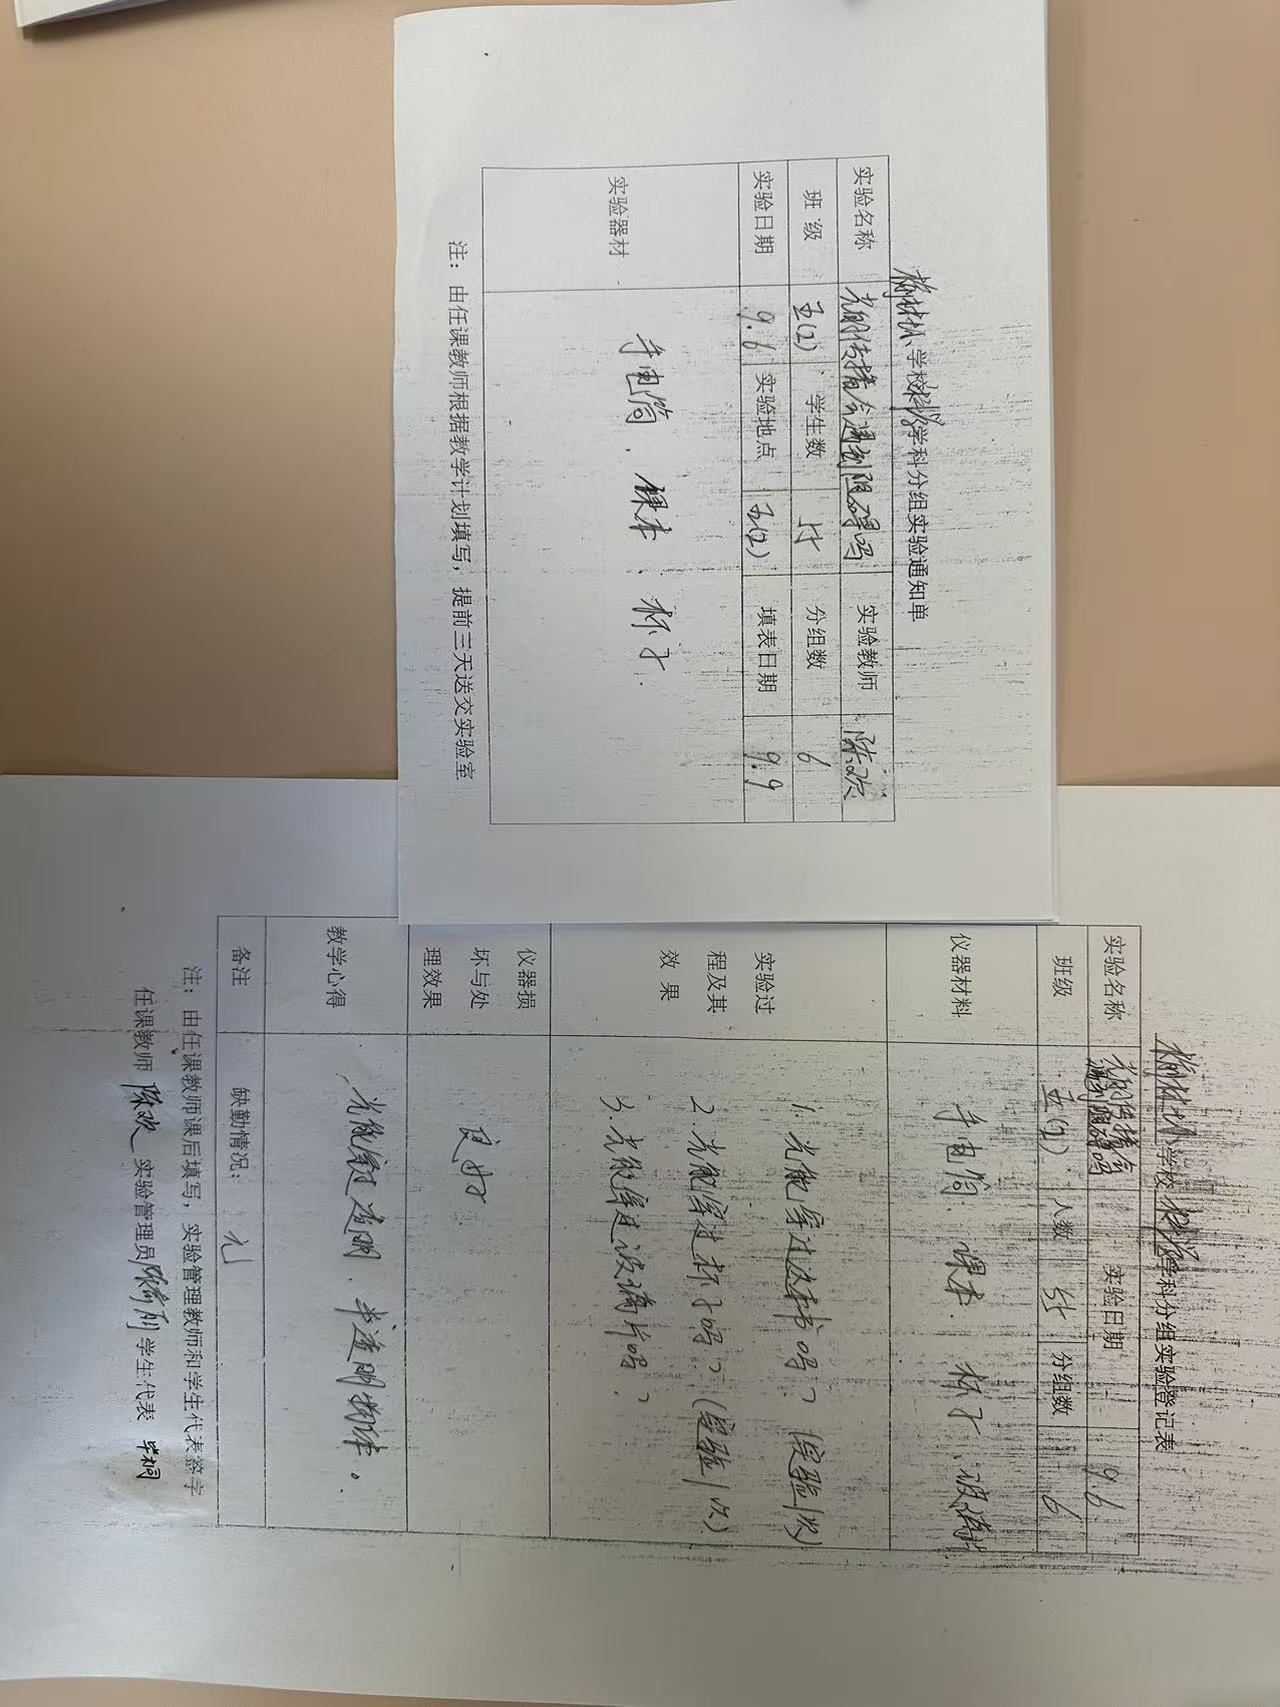 小学校科学学科分组实验通知单
实验名称 光的传播会遇到阻碍吗 实验教师 陈欢
班 级 五(2) 学生数 分组数 6
实验日期 9.6 实验地点 五(2) 填表日期 9.9
实验器材 手电筒、课本、杯子.
注：由任课教师根据教学计划填写，提前三天送交实验室
小学校科学学科分组实验登记表
实验名称 光的传播会遇到阻碍吗 实验日期 9.6
班级 五(2) 人数 分组数 6
仪器材料 手电筒 课本 杯子、玻璃片
实验过程及其效果
1. 光能穿过这本书吗？(实验1次)
2. 光能穿过杯子吗？(实验1次)
3. 光能穿过玻璃片吗？
仪器损坏与处理效果 良好
教学心得 光能穿过透明、半透明物体。
备注 缺勤情况：
注：由任课教师课后填写，实验管理教师和学生代表签字
任课教师 陈欢 实验管理员 学生代表 毕桐